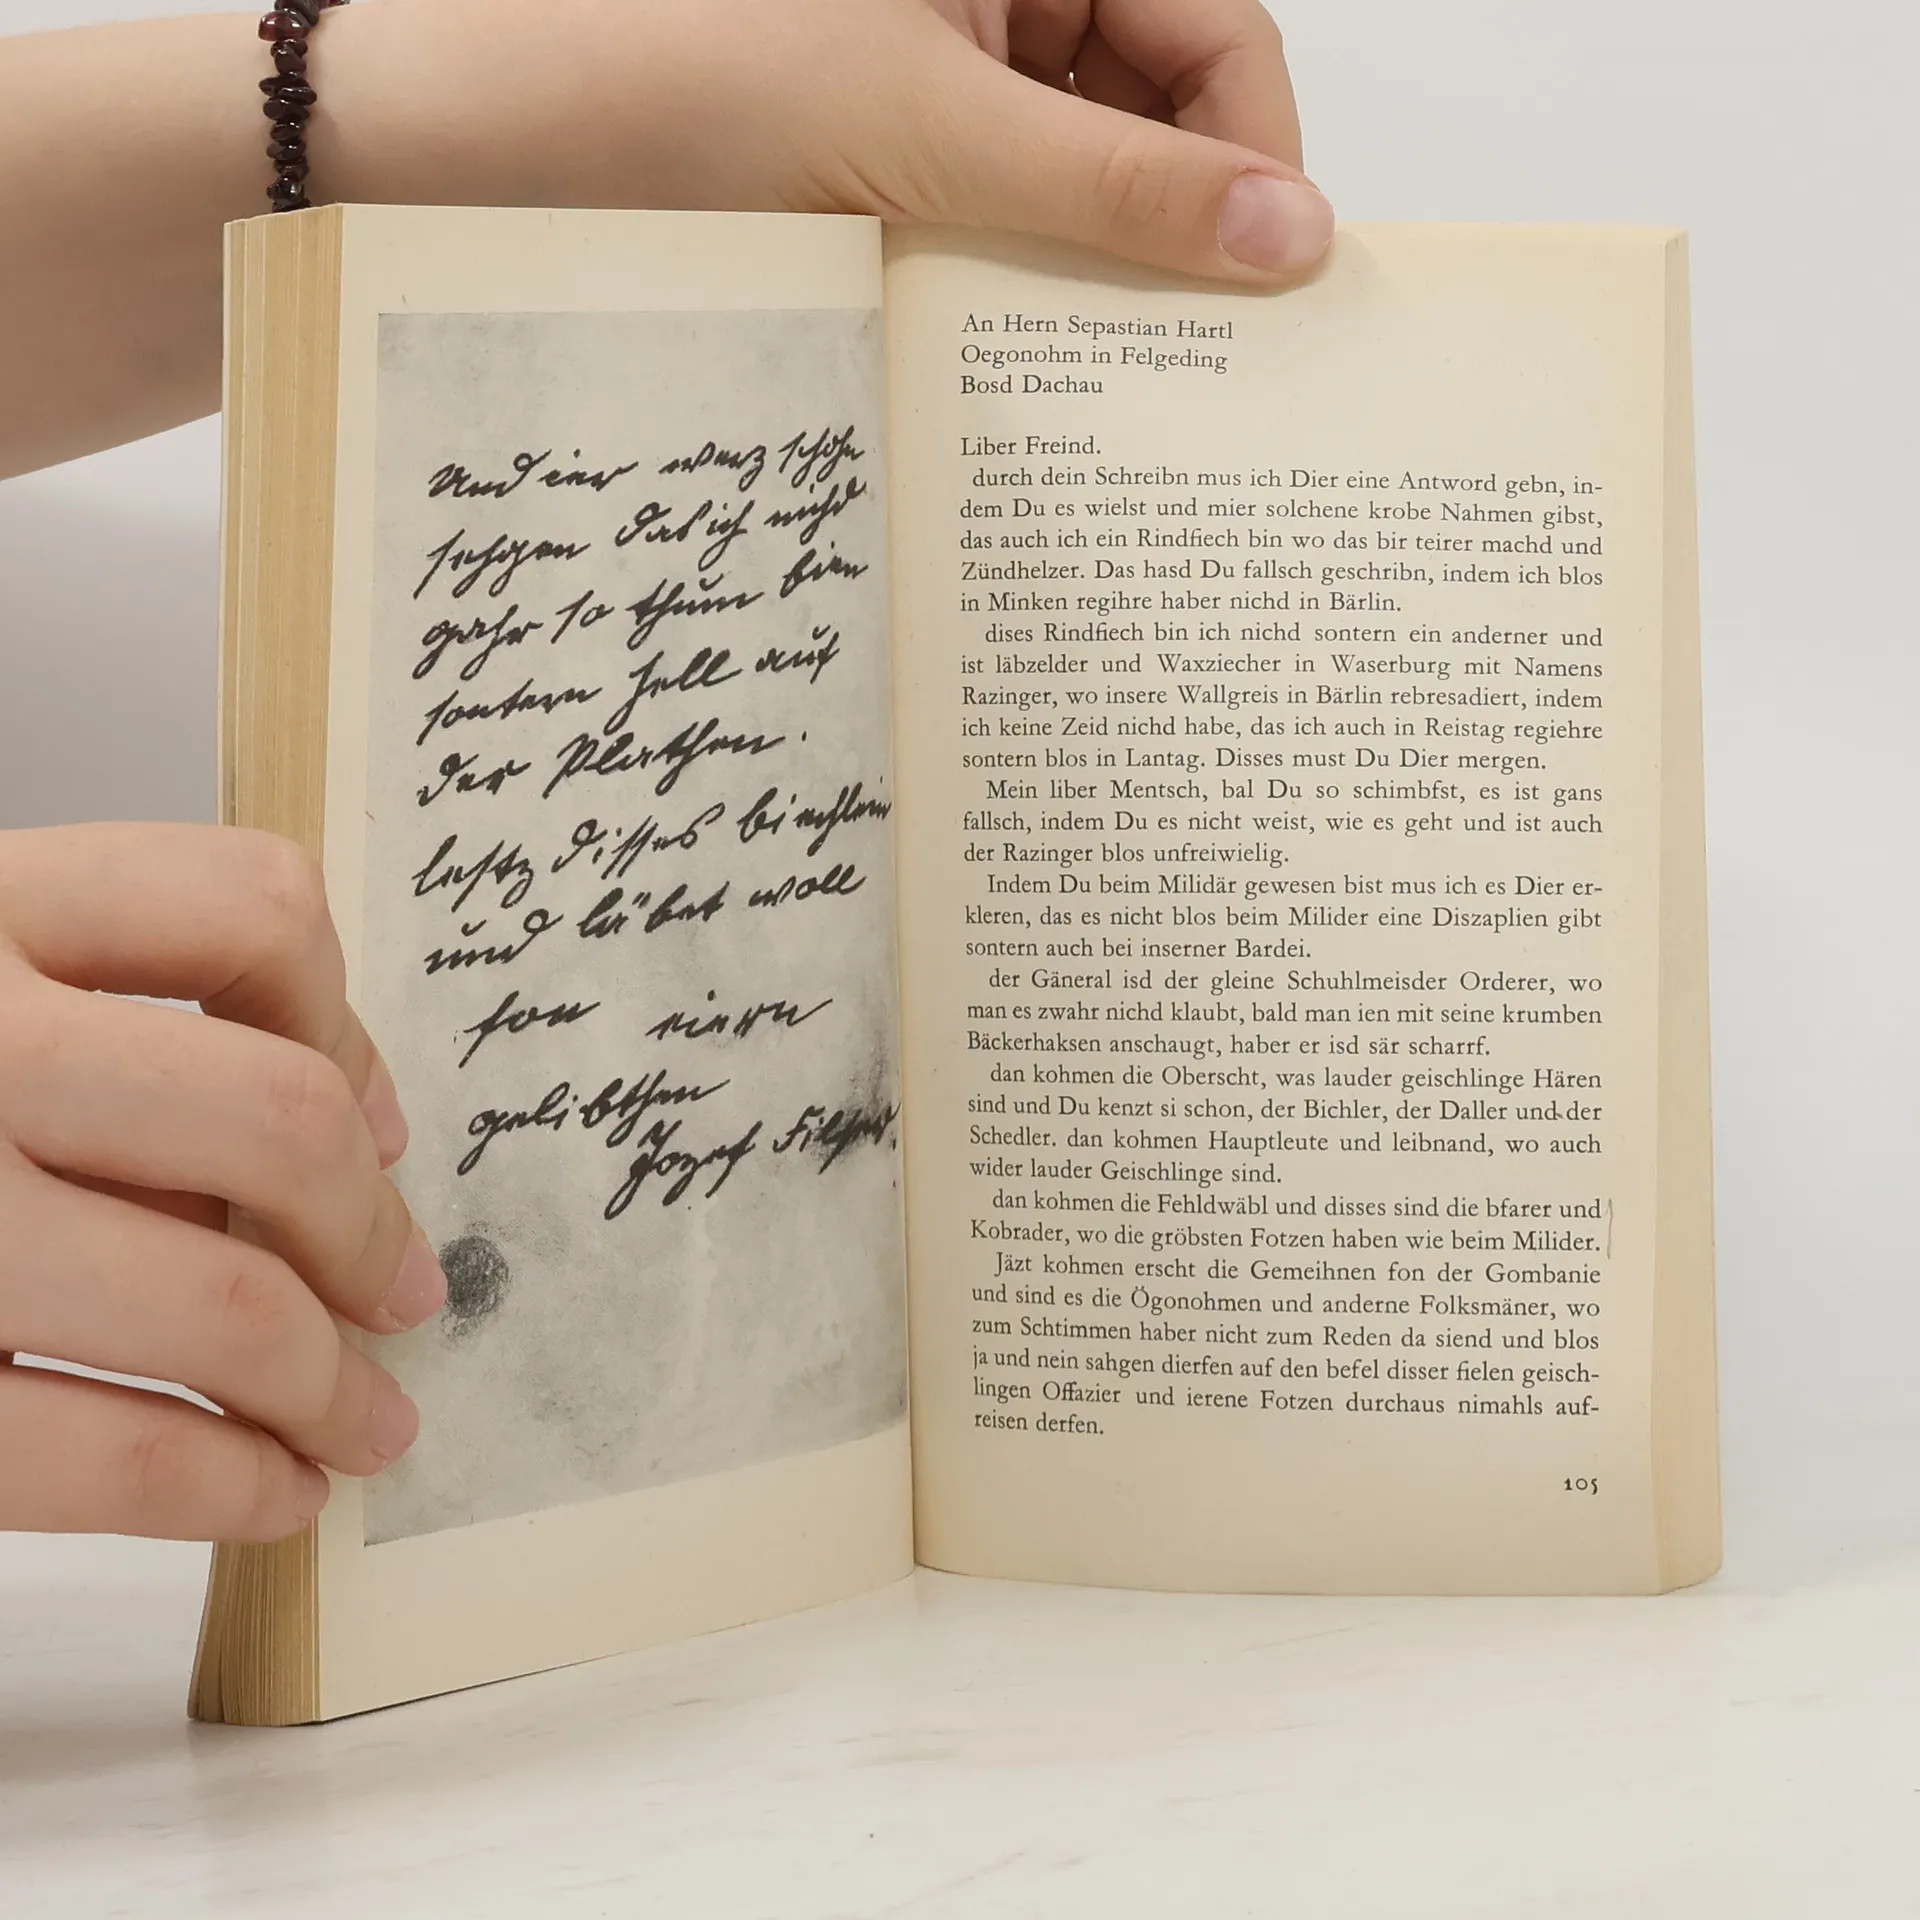 Und ier werz schohn
sehgen das ich nichd
gahr so thum bien
sontern hell auf
der Plathen.
lestz disses biechlein
und läbet woll
fon eiern
geliebthen
Jozef Filser.
An Hern Sepastian Hartl
Oegonohm in Felgeding
Bosd Dachau
Liber Freind.
durch dein Schreibn mus ich Dier eine Antword gebn, in-
dem Du es wielst und mier solchene krobe Nahmen gibst,
das auch ich ein Rindfiech bin wo das bir teirer machd und
Zündhelzer. Das hasd Du fallsch geschribn, indem ich blos
in Minken regihre haber nichd in Bärlin.
dises Rindfiech bin ich nichd sontern ein anderner und
ist läbzelder und Waxziecher in Waserburg mit Namens
Razinger, wo insere Wallgreis in Bärlin rebresadiert, indem
ich keine Zeid nichd habe, das ich auch in Reistag regiehre
sontern blos in Lantag. Disses must Du Dier mergen.
Mein liber Mentsch, bal Du so schimbfst, es ist gans
fallsch, indem Du es nicht weist, wie es geht und ist auch
der Razinger blos unfreiwielig.
Indem Du beim Milidär gewesen bist mus ich es Dier er-
kleren, das es nicht blos beim Milider eine Diszaplien gibt
sontern auch bei inserner Bardei.
der Gäneral isd der gleine Schuhlmeisder Orderer, wo
man es zwahr nichd klaubt, bald man ien mit seine krumben
Bäckerhaksen anschaugt, haber er isd sär scharrf.
dan kohmen die Oberscht, was lauder geischlinge Hären
sind und Du kenzt si schon, der Bichler, der Daller und der
Schedler. dan kohmen Hauptleute und leibnand, wo auch
wider lauder Geischlinge sind.
dan kohmen die Fehldwäbl und disses sind die bfarer und
Kobrader, wo die gröbsten Fotzen haben wie beim Milider.
Jäzt kohmen erscht die Gemeihnen fon der Gombanie
und sind es die Ögonohmen und anderne Folksmäner, wo
zum Schtimmen haber nicht zum Reden da siend und blos
ja und nein sahgen dierfen auf den befel disser fielen geisch-
lingen Offazier und ierene Fotzen durchaus nimahls auf-
reisen derfen.
105